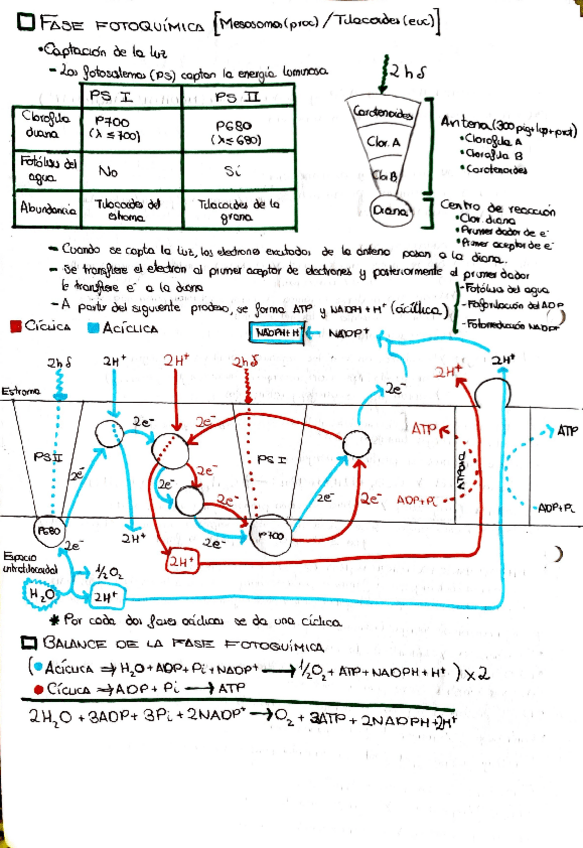 FASE FOTOQUÍMICA [Mesosoma (proc) / Tilacoides (euc)]
• Captación de la luz
- Los fotosistemas (PS) captan la energía luminosa
PS I
PS II
Clorofila diana
P700
(λ ≤ 700)
P680
(λ ≤ 680)
Fotólisis del agua
No
Sí
Abundancia
Tilacoides del estroma
Tilacoides de la grana
2hδ
Carotenoides
Clor. A
Clo. B
Diana
Antena (300 pig + lip + prot)
• Clorofila A
• Clorofila B
• Carotenoides
Centro de reacción
• Clor. diana
• Primer dador de e⁻
• Primer aceptor de e⁻
- Cuando se capta la luz, los electrones excitados de la antena pasan a la diana.
- Se transfiere el electron al primer aceptor de electrones y posteriormente el primer dador
le transfiere e⁻ a la diana
- A partir del siguiente proceso, se forma ATP y NADPH + H⁺ (acíclica)
- Fotólisis del agua
- Fosforilación del ADP
- Fotorreducción NADP⁺
CÍCLICA
ACÍCLICA
NADPH + H⁺
NADP⁺
2hδ
2H⁺
2H⁺
2hδ
2e⁻
2H⁺
2H⁺
Estroma
2e⁻
2e⁻
ATP
ATP
PS II
2e⁻
2e⁻
2e⁻
PS I
2e⁻
2e⁻
2e⁻
ADP + Pi
ADP + Pi
P680
2e⁻
2H⁺
2e⁻
P700
Espacio
intratilacoidal
½O₂
2H⁺
H₂O
2H⁺
* Por cada dos fases acíclicas se da una cíclica.
BALANCE DE LA FASE FOTOQUÍMICA
( • ACÍCLICA ⇒ H₂O + ADP + Pi + NADP⁺ → ½O₂ + ATP + NADPH + H⁺ ) x 2
• CÍCLICA ⇒ ADP + Pi → ATP
2H₂O + 3ADP + 3Pi + 2NADP⁺ → O₂ + 3ATP + 2NADPH + 2H⁺